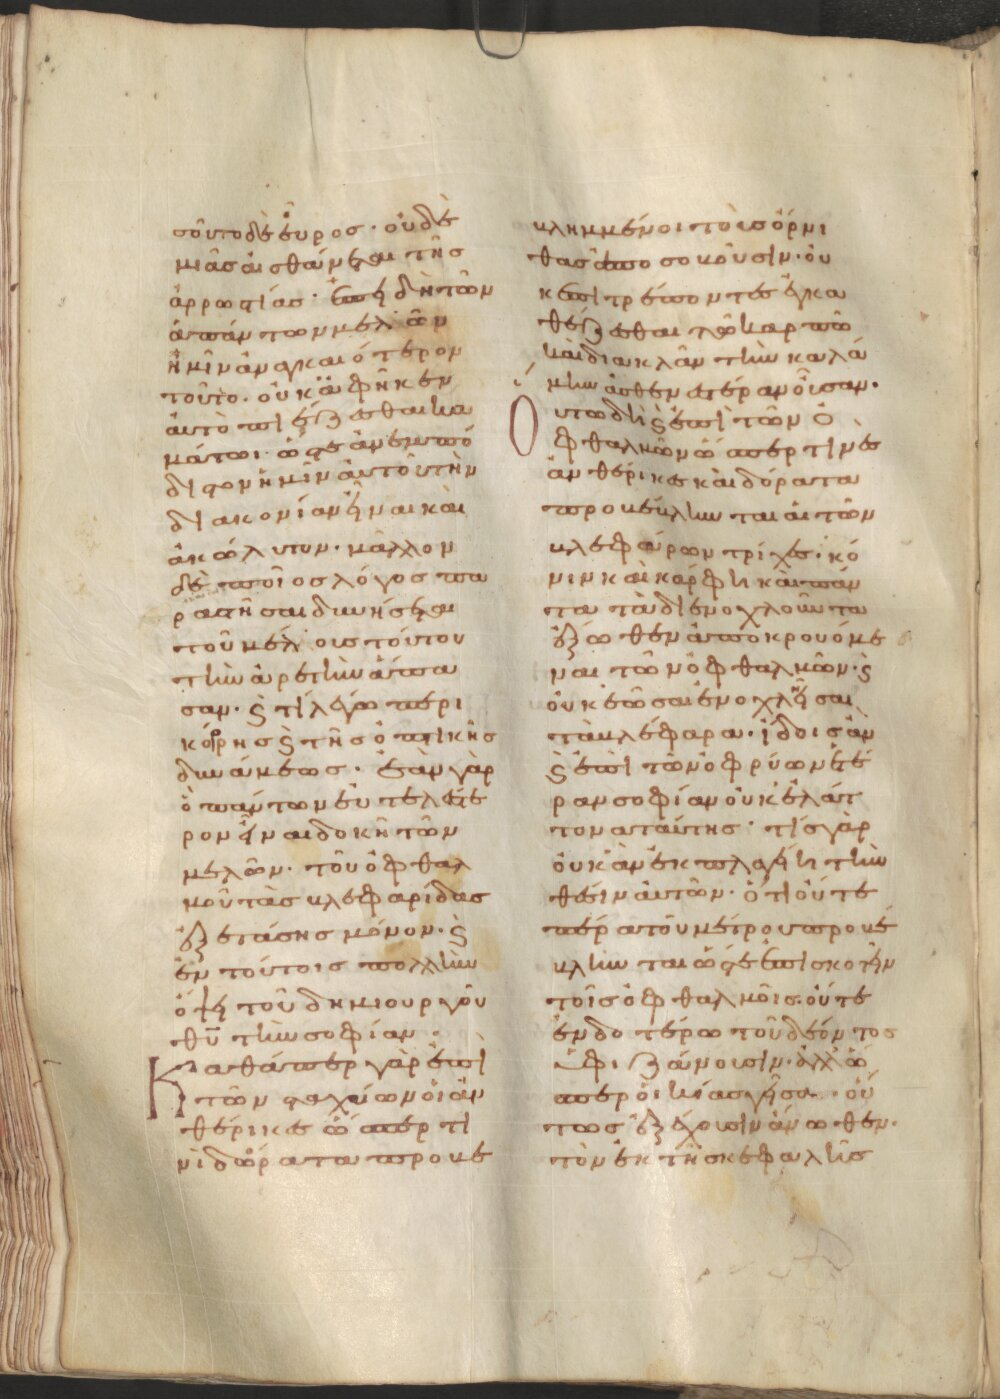 σοῦτο δὲ εὖρος· οὐδὲ
μιᾶς αἰσθάνεται τῆς
ἀρρωστίας· ἐπειδὴ τῶν
ἁπάντων μελῶν
ἡμῖν ἀναγκαιότερον
τοῦτο. οὐκ ἀφῆκεν
αὐτὸ πιέζεσθαι κα
μάτωι· ὥστε ἀνεμπό
διστον ἡμῖν αὐτοῦ τὴν
διακονίαν εἶναι καὶ
ἀκώλυτον· μᾶλλον
δὲ ποῖος λόγος πα
ραστῆσαι δυνήσεται
τοῦ μέλους τούτου
τὴν ἀρετὴν ἅπα
σαν· ϗ τί λέγω περὶ
κόρης ϗ τῆς ὀπτικῆς
δυνάμεως· ἐὰν γὰρ
ὁ πάντων εὐτελέστε
ρον εἶναι δοκῆ τῶν
μελῶν· τοῦ ὀφθαλ
μοῦ τὰς βλεφαρίδας
ἐξετάσης μόνον· ϗ
ἐν τούτοις πολλὴν
ὄψει τοῦ δημιουργοῦ
θῦ τὴν σοφίαν·
Καθάπερ γὰρ ἐπὶ
τῶν σταχύων οἱ ἀν
θέρικες ὥσπερ τι
νὶ δώρατα προβε
βλημμένοι τοῖς ὄρνι
θας ἀποσοβοῦσιν· οὐ
κ ἐπιτρέποντες ἐγκα
θέζεσθαι τῶ καρπῶ
καὶ διακλᾶν τὴν καλά
μην ἀσθενεστέραν οὖσαν·
Οὕτω δὴ ϗ ἐπὶ τῶν ὀ
φθαλμῶν ὥσπερ τινὲς
ἀνθέρικες καὶ δόρατα
προβέβληνται αἱ τῶν
βλεφάρων τρίχες· κό
νιν καὶ κάρφη καὶ πάν
τα τὰ διενοχλοῦντα
ἔξωθεν ἀποκρουόμε
ναι τῶν ὀφθαλμῶν· ϗ
οὐκ ἐῶσαι ἐνοχλεῖσθαι
τὰ βλέφαρα· ἴδοις ἂν
ϗ ἐπὶ τῶν ὀφρύων ἑτέ
ραν σοφίαν οὐκ ἐλάτ
τονα ταύτης· τίς γὰρ
οὐκ ἂν ἐκπλαγείη τὴν
θέσιν αὐτῶν· ὅτι οὔτε
πέρα τοῦ μέτρου προβέ
βληνται ὥστε ἐπισκοτεῖν
τοῖς ὀφθαλμοῖς· οὔτε
ἐνδοτέρω τοῦ δέοντος
ἐφιζάνουσιν· ἀλλ' ὥ
σπερ οἰκίας γεῖσα· οὕ
τως ἐξέχουσιν ἄνωθεν·
τὸν ἐκ τῆς κεφαλῆς